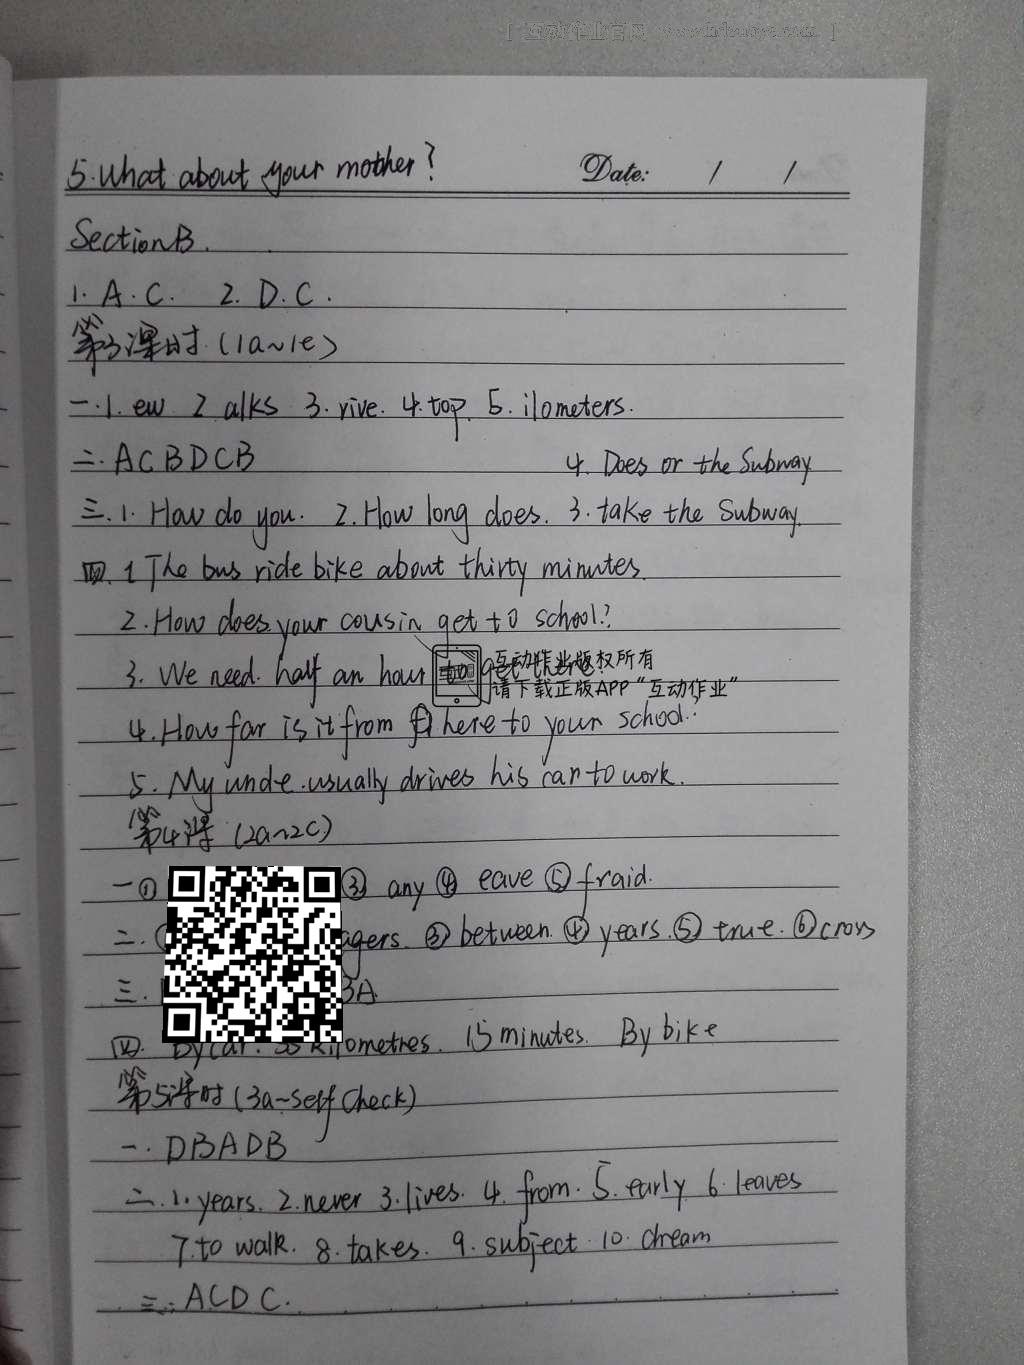 互动作业官网
5. What about your mother?
Date: / /
Section B.
1. A. C. 2. D. C.
第3课时 (1a~1e)
一. 1. ew 2 alks 3. rive. 4. top. 5. ilometers.
二. A C B D C B
4. Does or the Subway
三. 1. How do you. 2. How long does. 3. take the Subway.
四. 1 The bus ride bike about thirty minutes.
2. How does your cousin get to school?
3. We need half an hour to get there
互动作业版权所有
请下载正版APP“互动作业”
4. How far is it from here to your school?
5. My unde usually drives his car to work.
第4课 (2a~2c)
一 ① ③ any ④ eave ⑤ fraid.
二. agers. ③ between. ④ years. ⑤ true. ⑥ cross
三. 3A
四. By car. kilometres. 15 minutes. By bike
第5课时 (3a~Self Check)
一. D B A D B
二. 1. years. 2. never 3. lives. 4. from. 5. early 6. leaves
7. to walk. 8. takes. 9. subject. 10. dream
三. A C D C.